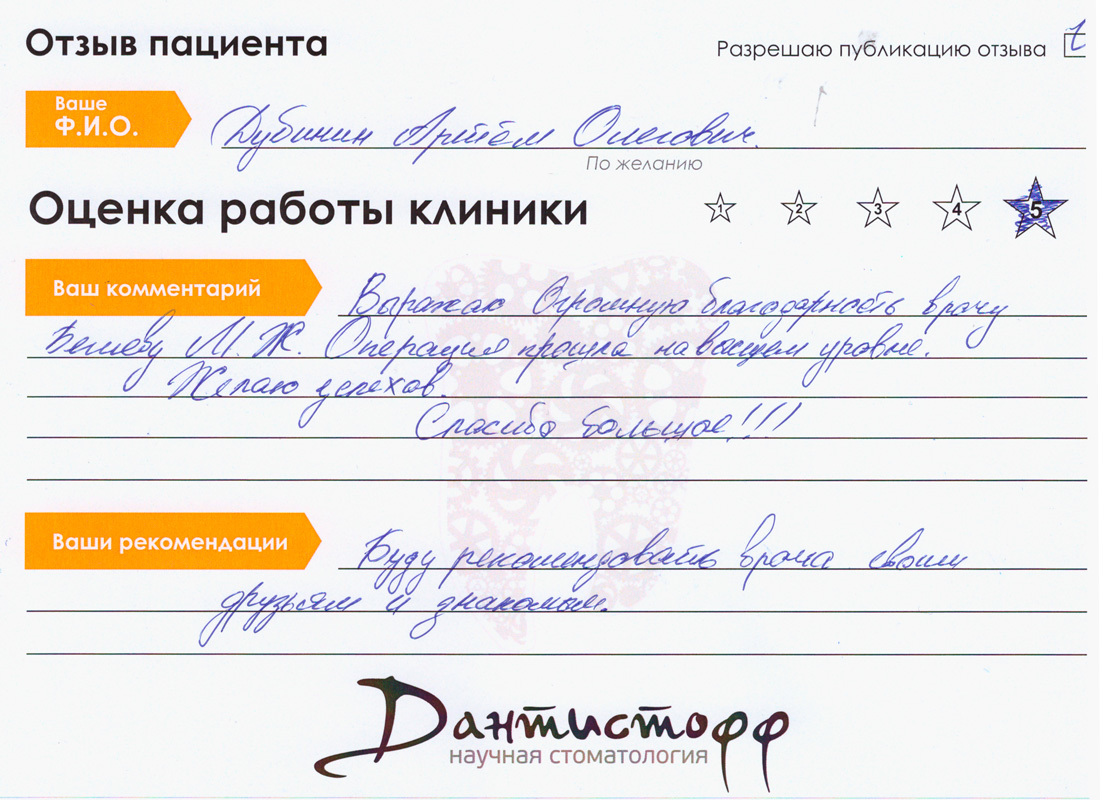 Отзыв пациента
Разрешаю публикацию отзыва
Ваше
Ф.И.О.
Дубинин Артём Олегович.
По желанию
Оценка работы клиники
1 2 3 4 5
Ваш комментарий
Выражаю Огромную благодарность врачу
М.Ж. Операция прошла на высшем уровне.
Желаю успехов.
Спасибо большое!!!
Ваши рекомендации
Буду рекомендовать врача своим
друзьям и знакомым.
Дантистофф
научная стоматология